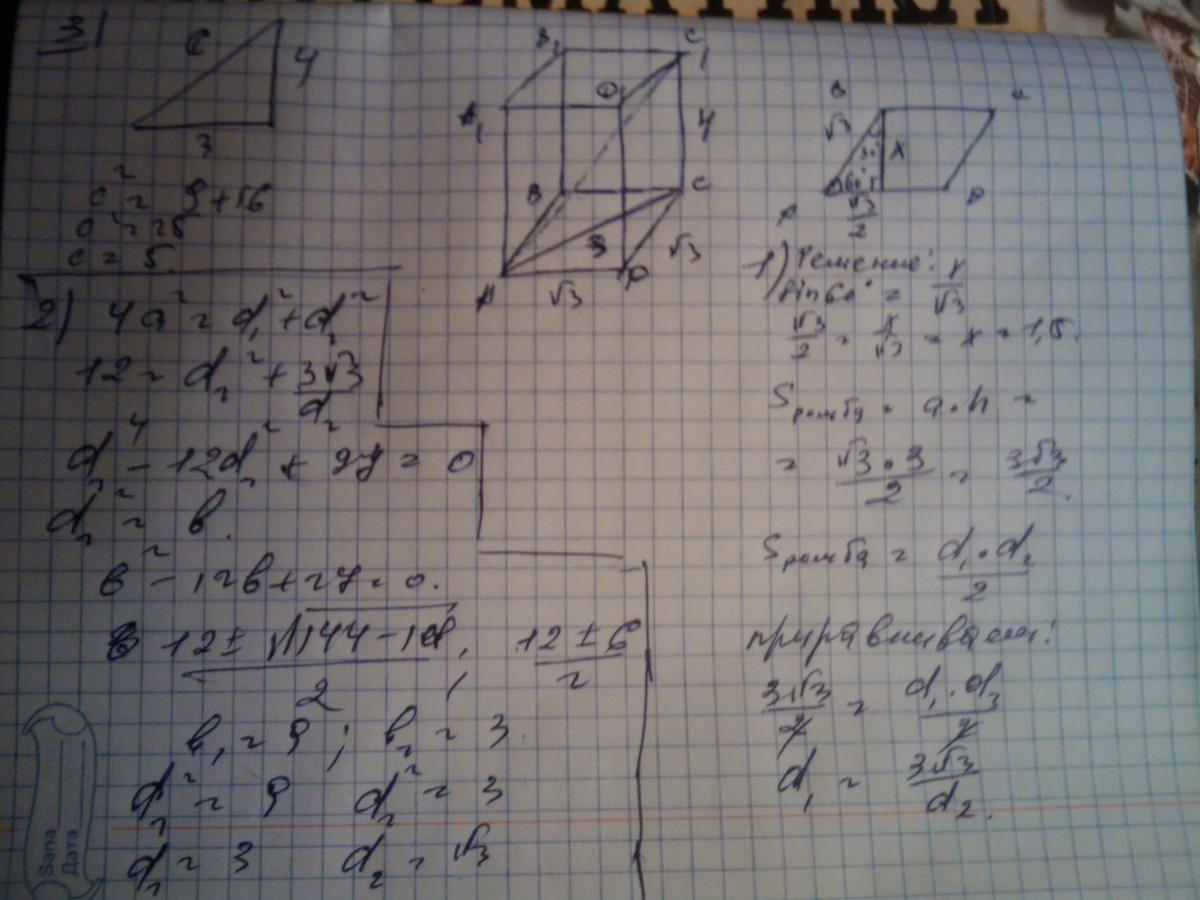 3)
C
4
3
c² = 9 + 16
c² = 25
c = 5.
2) 4a² = d₁² + d₂²
12 = d₂² + 3√3/d₂
d₂⁴ - 12d₂² + 27 = 0
d₂² = в.
в² - 12в + 27 = 0.
12 ± √144 - 108 / 2, 12 ± 6 / 2
в₁ = 9; в₂ = 3
d₂² = 9 d₂² = 3
d₂ = 3 d₂ = √3
B₁ C₁
A₁ D
4
B C
3 √3
A √3 D
B C
√3 30° x
60°
A √3/2 D
1) Решение:
sin60° = x/√3
√3/2 = x/√3 = x = 1,5.
Sромба = a·h =
= √3·3/2 = 3√3/2.
Sромба = d₁·d₂/2
приравниваем:
3√3/2 = d₁·d₂/2
d₁ = 3√3/d₂.
Sana
Дата